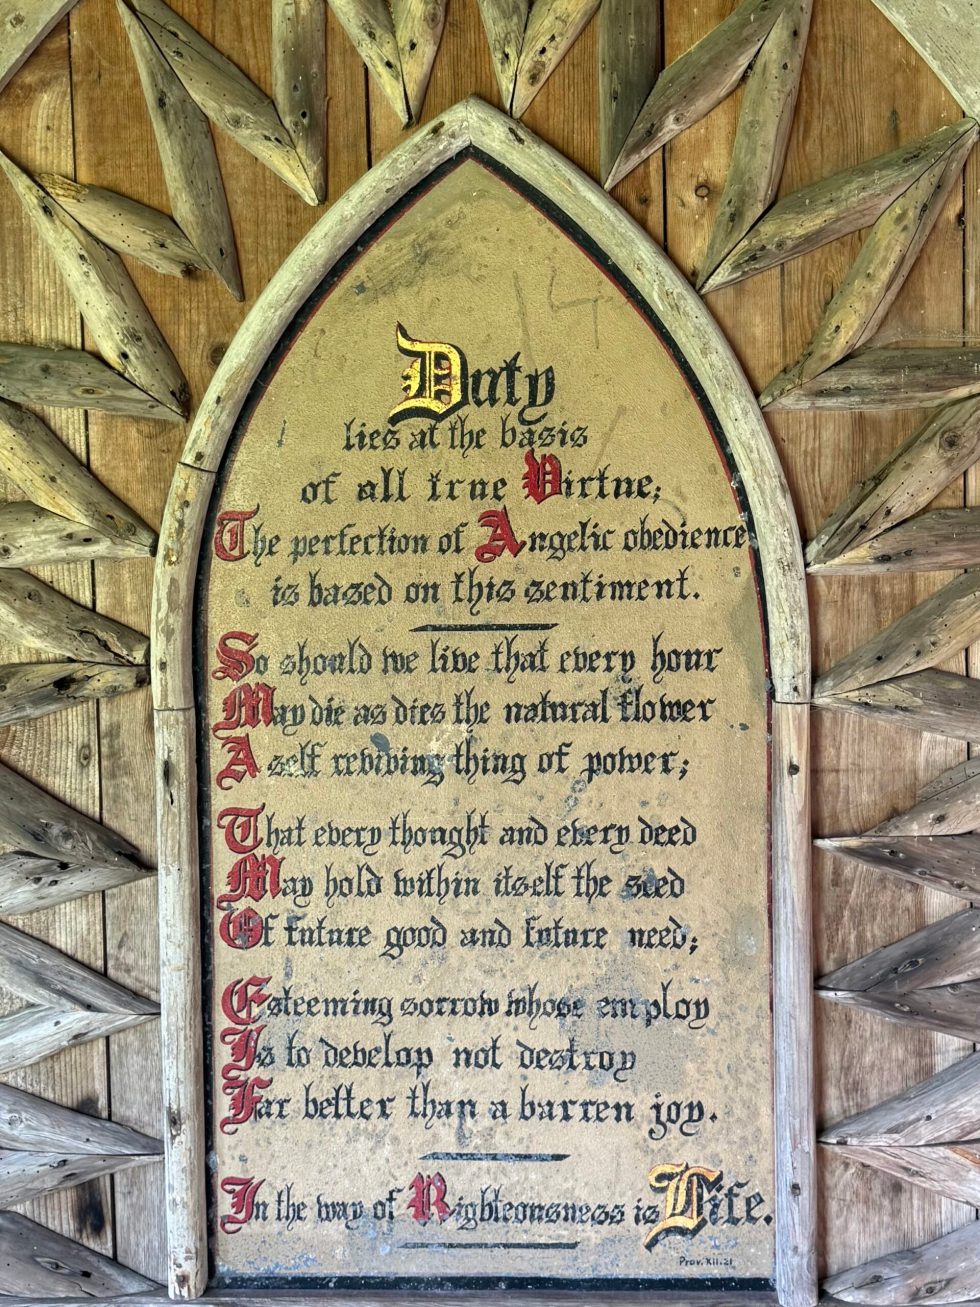 Duty
lies at the basis
of all true Virtue;
The perfection of Angelic obedience
is based on this sentiment.
So should we live that every hour
May die as dies the natural flower
A self reviving thing of power;
That every thought and every deed
May hold within itself the seed
Of future good and future need;
Esteeming sorrow whose employ
Is to develop not destroy
Far better than a barren joy.
In the way of Righteousness is Life.
Prov. XII. 21